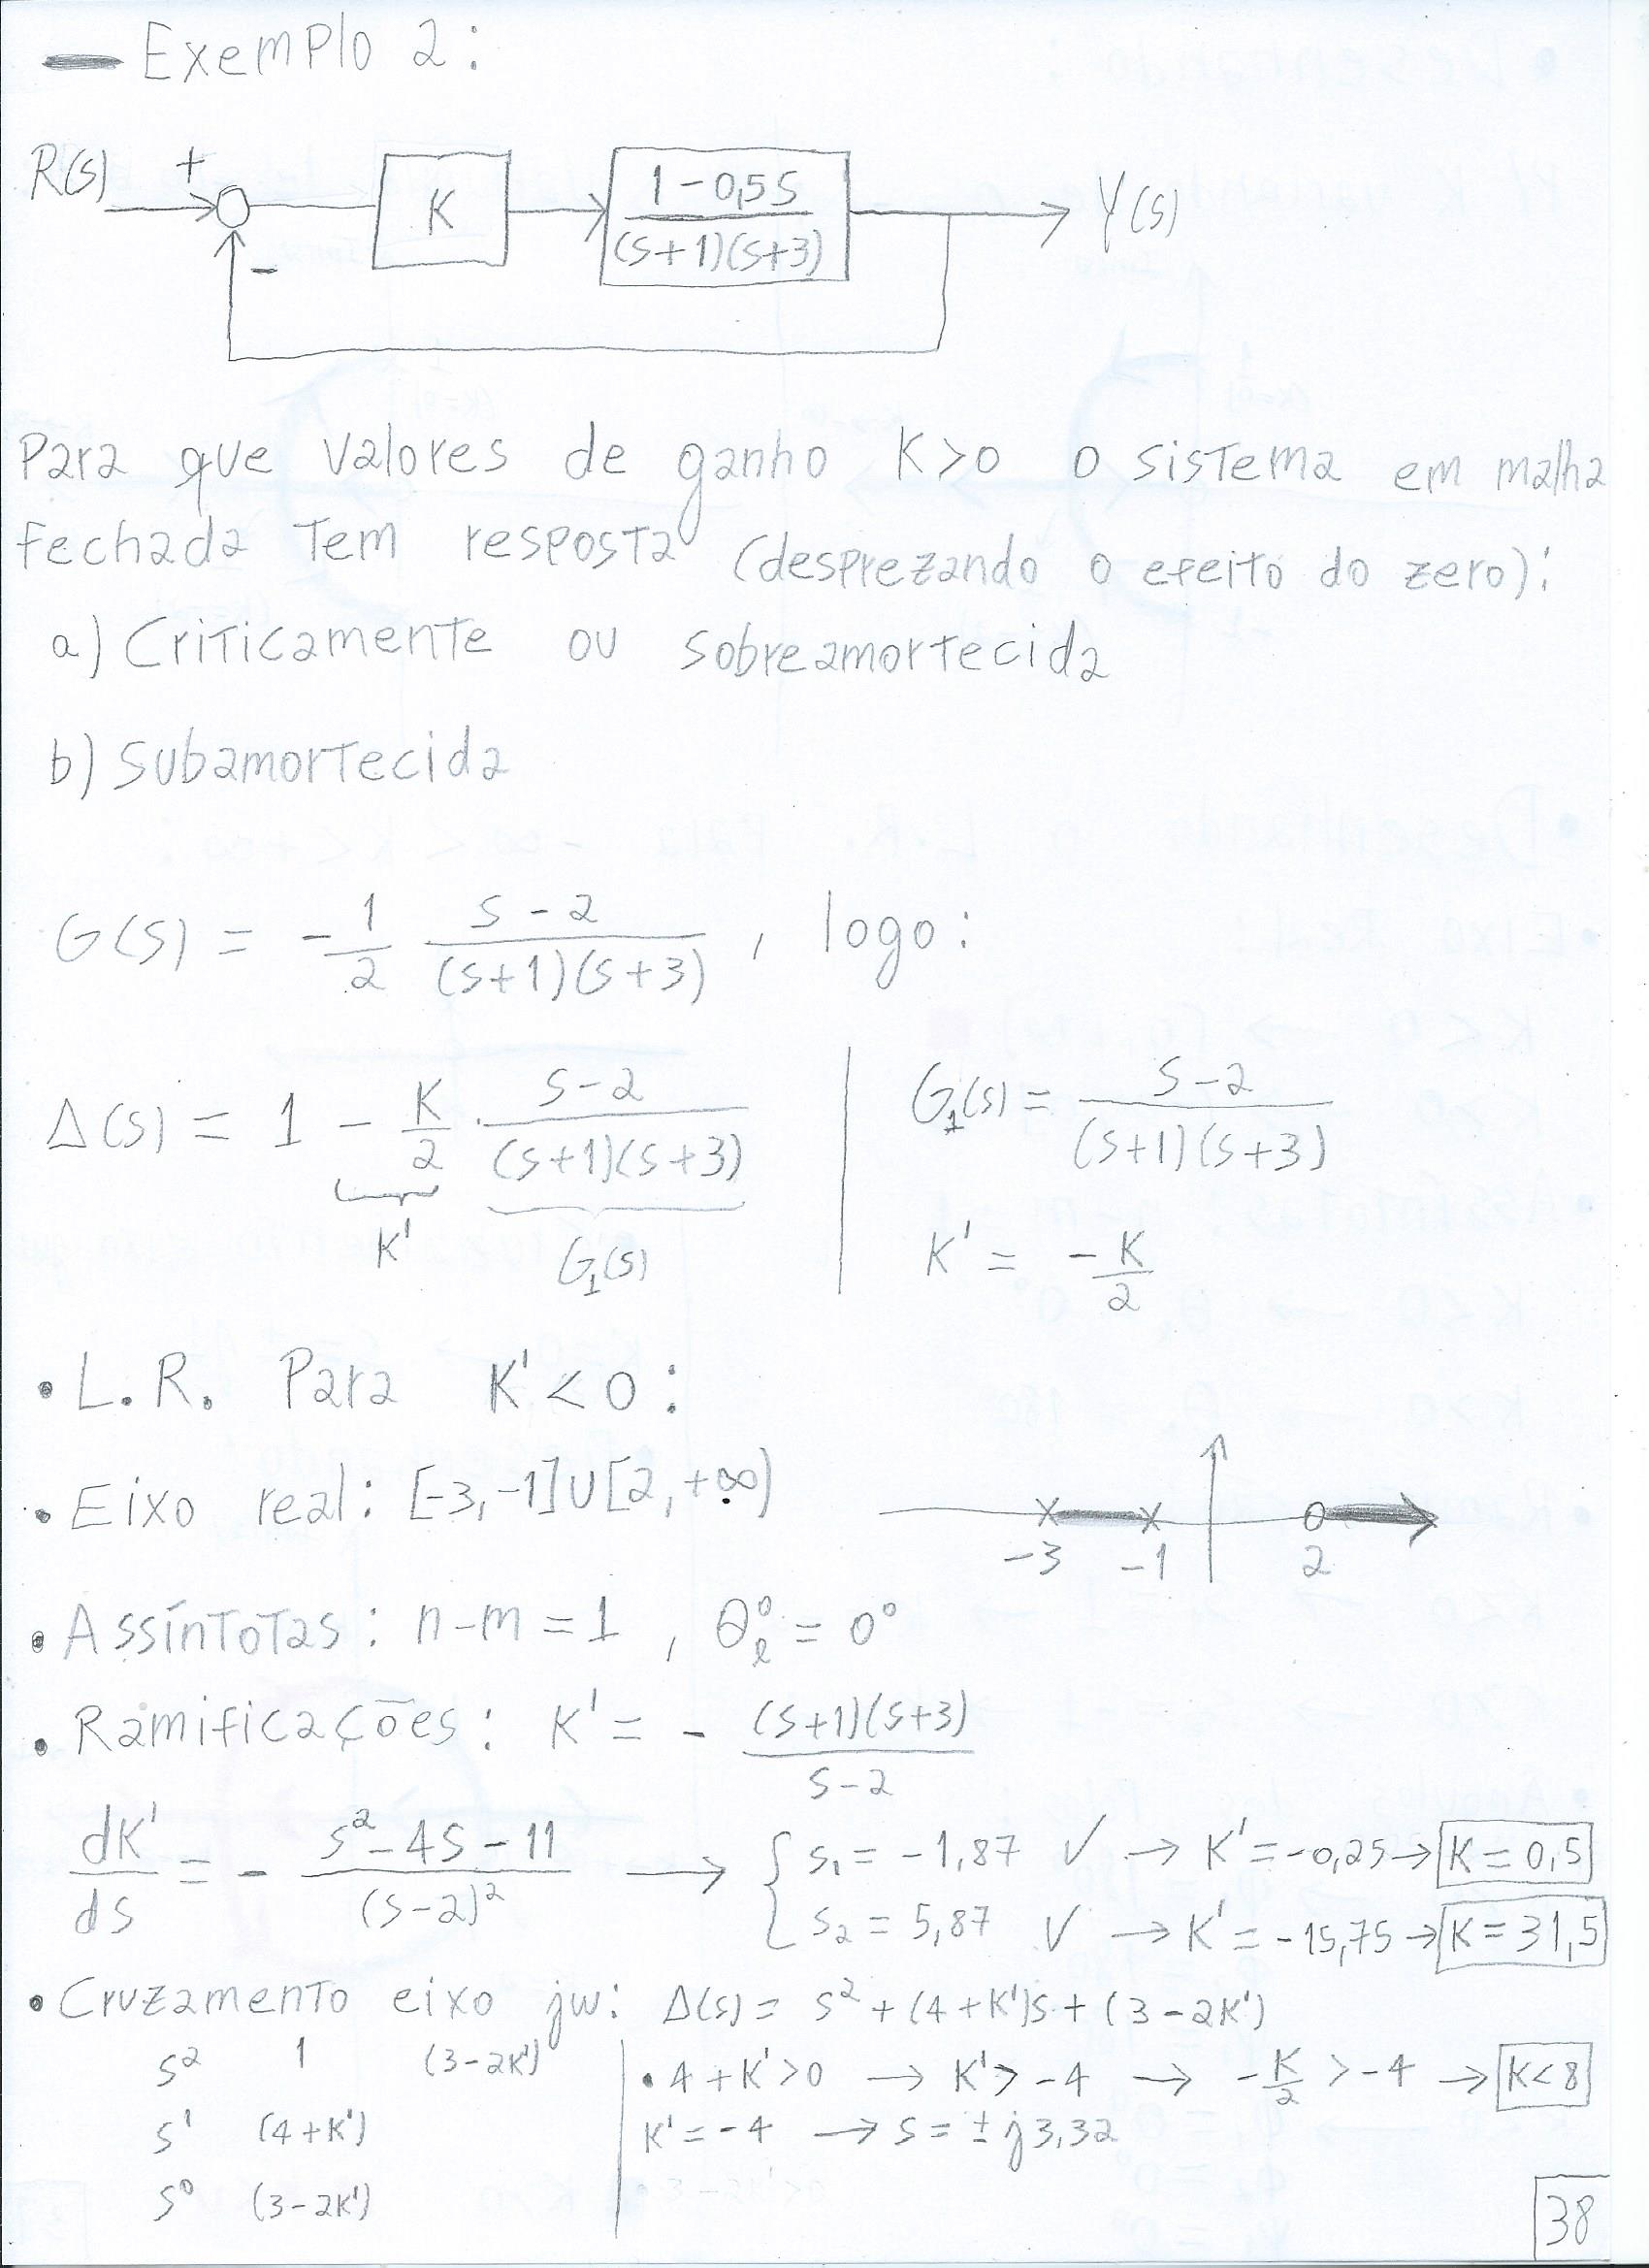 — Exemplo 2:
R(s) + - K (1-0,5s)/((s+1)(s+3)) Y(s)
Para que valores de ganho K>0 o sistema em malha
fechada tem resposta (desprezando o efeito do zero):
a) Criticamente ou sobreamortecida
b) Subamortecida
G(s) = -1/2 (s-2)/((s+1)(s+3)), logo:
Δ(s) = 1 - K/2 · (s-2)/((s+1)(s+3)) | G₁(s) = (s-2)/((s+1)(s+3))
K' G₁(s) | K' = -K/2
• L.R. Para K' < 0:
• Eixo real: [-3,-1]U[2,+∞)
-3 -1 2
• Assíntotas: n-m = 1, θℓ° = 0°
• Ramificações: K' = - (s+1)(s+3)/(s-2)
dK'/ds = - (s²-4s-11)/(s-2)² → { s₁ = -1,87 ✓ → K' = -0,25 → K = 0,5
s₂ = 5,87 ✓ → K' = -15,75 → K = 31,5
• Cruzamento eixo jw: Δ(s) = s² + (4+K')s + (3-2K')
s² 1 (3-2K') | • 4+K'>0 → K' > -4 → -K/2 > -4 → K<8
s¹ (4+K') | K' = -4 → s = ± j3,32
s⁰ (3-2K')
38